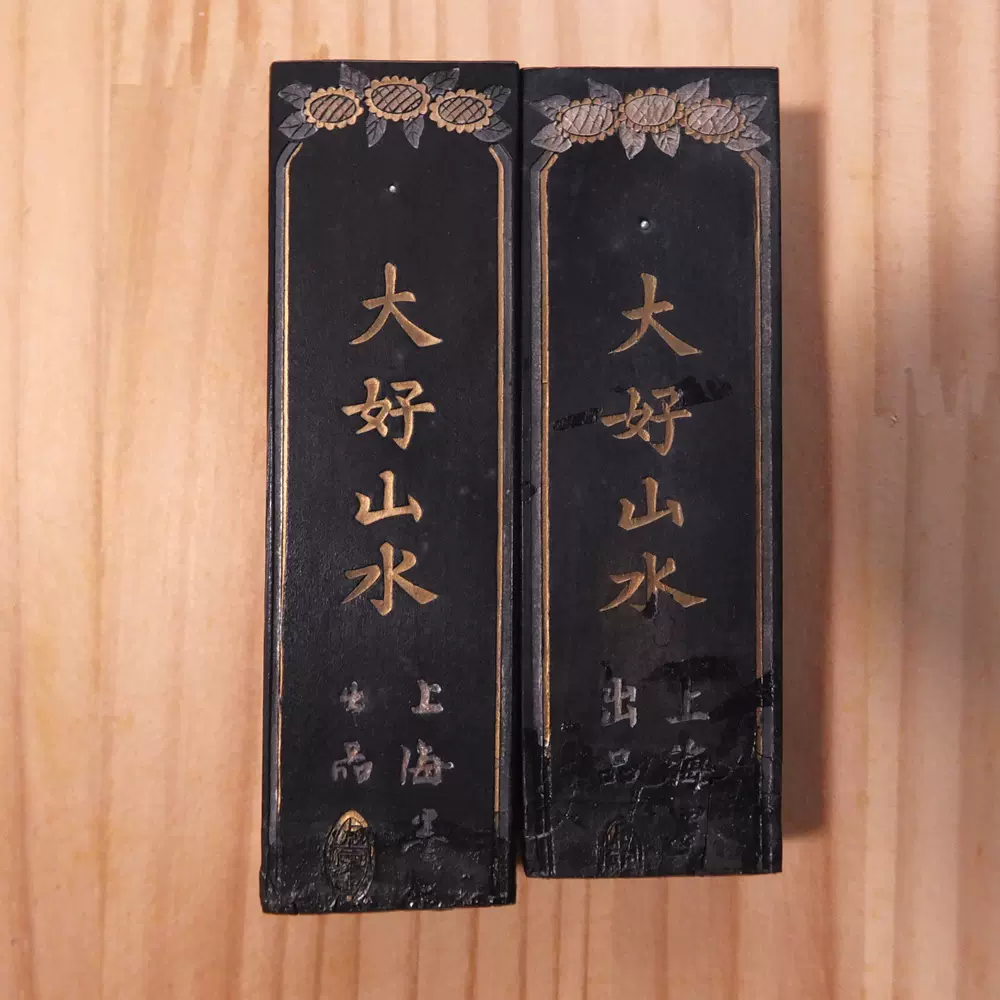 大好山水
上海墨
出品
大好山水
上海
出品